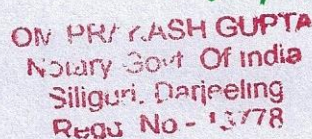 OM PRAKASH GUPTA
Notary Govt Of India
Siliguri, Darjeeling
Regd No - 13778